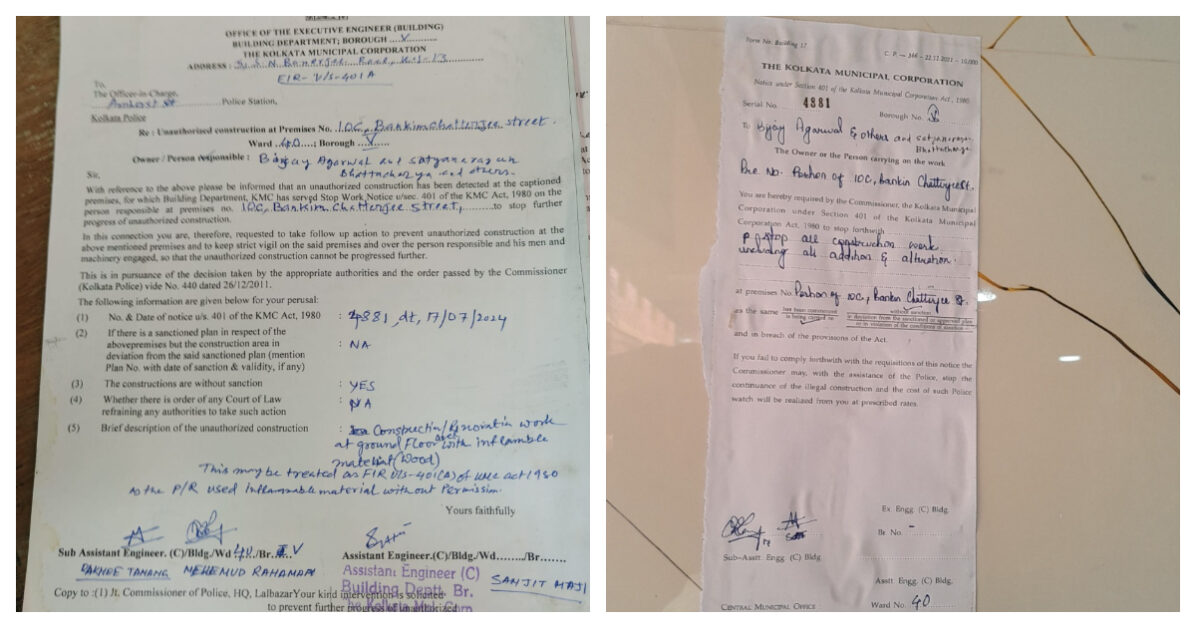 OFFICE OF THE EXECUTIVE ENGINEER (BUILDING)
BUILDING DEPARTMENT; BOROUGH ....V............
THE KOLKATA MUNICIPAL CORPORATION
ADDRESS : 5, S.N. Banerjee Road, Kol-13
FIR- U/S-401A
To,
The Officer-in-Charge,
Amherst St ............ Police Station,
Kolkata Police
Re : Unauthorized construction at Premises No. 10C, Bankim Chatterjee street.
Ward .40....; Borough ....V.......
Owner / Person responsible : Bijay Agarwal and Satyanarayan
Bhattacharya and others.
Sir,
With reference to the above please be informed that an unauthorized construction has been detected at the captioned
premises, for which Building Department, KMC has served Stop Work Notice u/sec. 401 of the KMC Act, 1980 on the
person responsible at premises no. 10C, Bankim Chatterjee street, ........to stop further
progress of unauthorized construction.
In this connection you are, therefore, requested to take follow up action to prevent unauthorized construction at the
above mentioned premises and to keep strict vigil on the said premises and over the person responsible and his men and
machinery engaged, so that the unauthorized construction cannot be progressed further.
This is in pursuance of the decision taken by the appropriate authorities and the order passed by the Commissioner
(Kolkata Police) vide No. 440 dated 26/12/2011.
The following information are given below for your perusal:
(1) No. & Date of notice u/s. 401 of the KMC Act, 1980 : 4881, dt, 17/07/2024
(2) If there is a sanctioned plan in respect of the
abovepremises but the construction area in : NA
deviation from the said sanctioned plan (mention
Plan No. with date of sanction & validity, if any)
(3) The constructions are without sanction : YES
(4) Whether there is order of any Court of Law : NA
refraining any authorities to take such action
(5) Brief description of the unauthorized construction : Construction/Renovatin work
at ground Floor with inflamble
material (Wood)
This may be treated as FIR U/S-401(A) of KMC act 1980
as the P/R used inflammable material without Permission.
Yours faithfully
Sub Assistant Engineer. (C)/Bldg./Wd 40./Br. V
RAKHEE TAMANG MEHEMUD RAHAMAN
Assistant Engineer.(C)/Bldg./Wd......../Br.......
Assistant Engineer (C)
Building Deptt. Br.
SANJIT MAJI
Copy to :(1) Jt. Commissioner of Police, HQ, LalbazarYour kind intervention is solicited
to prevent further progress of unauthorized
Form No. Building 17
C. P.— 346 – 22.11.2021 – 10,000
THE KOLKATA MUNICIPAL CORPORATION
Notice under Section 401 of the Kolkata Municipal Corporation Act, 1980
Serial No. 4881
Borough No. V
To Bijay Agarwal & others and satyanarayan
Bhattacharya
The Owner or the Person carrying on the work
Pre No. Portion of 10C, Bankim Chatterjee St.
You are hereby required by the Commissioner, the Kolkata Municipal
Corporation under Section 401 of the Kolkata Municipal
Corporation Act, 1980 to stop forthwith
stop all construction work
including all addition & altration.
at premises No. Portion of 10C, Bankin Chatterjee St.
as the same has been commenced / is being carried on without sanction / in deviation from the sanctioned or approved plan / or in violation of the conditions of sanction
and in breach of the provisions of the Act.
If you fail to comply forthwith with the requisitions of this notice the
Commissioner may, with the assistance of the Police, stop the
continuance of the illegal construction and the cost of such Police
watch will be realized from you at prescribed rates.
Ex Engg. (C) Bldg.
Br. No. –
Sub-Asstt Engg (C) Bldg.
Asstt. Engg. (C) Bldg.
CENTRAL MUNICIPAL OFFICE
Ward No. 40